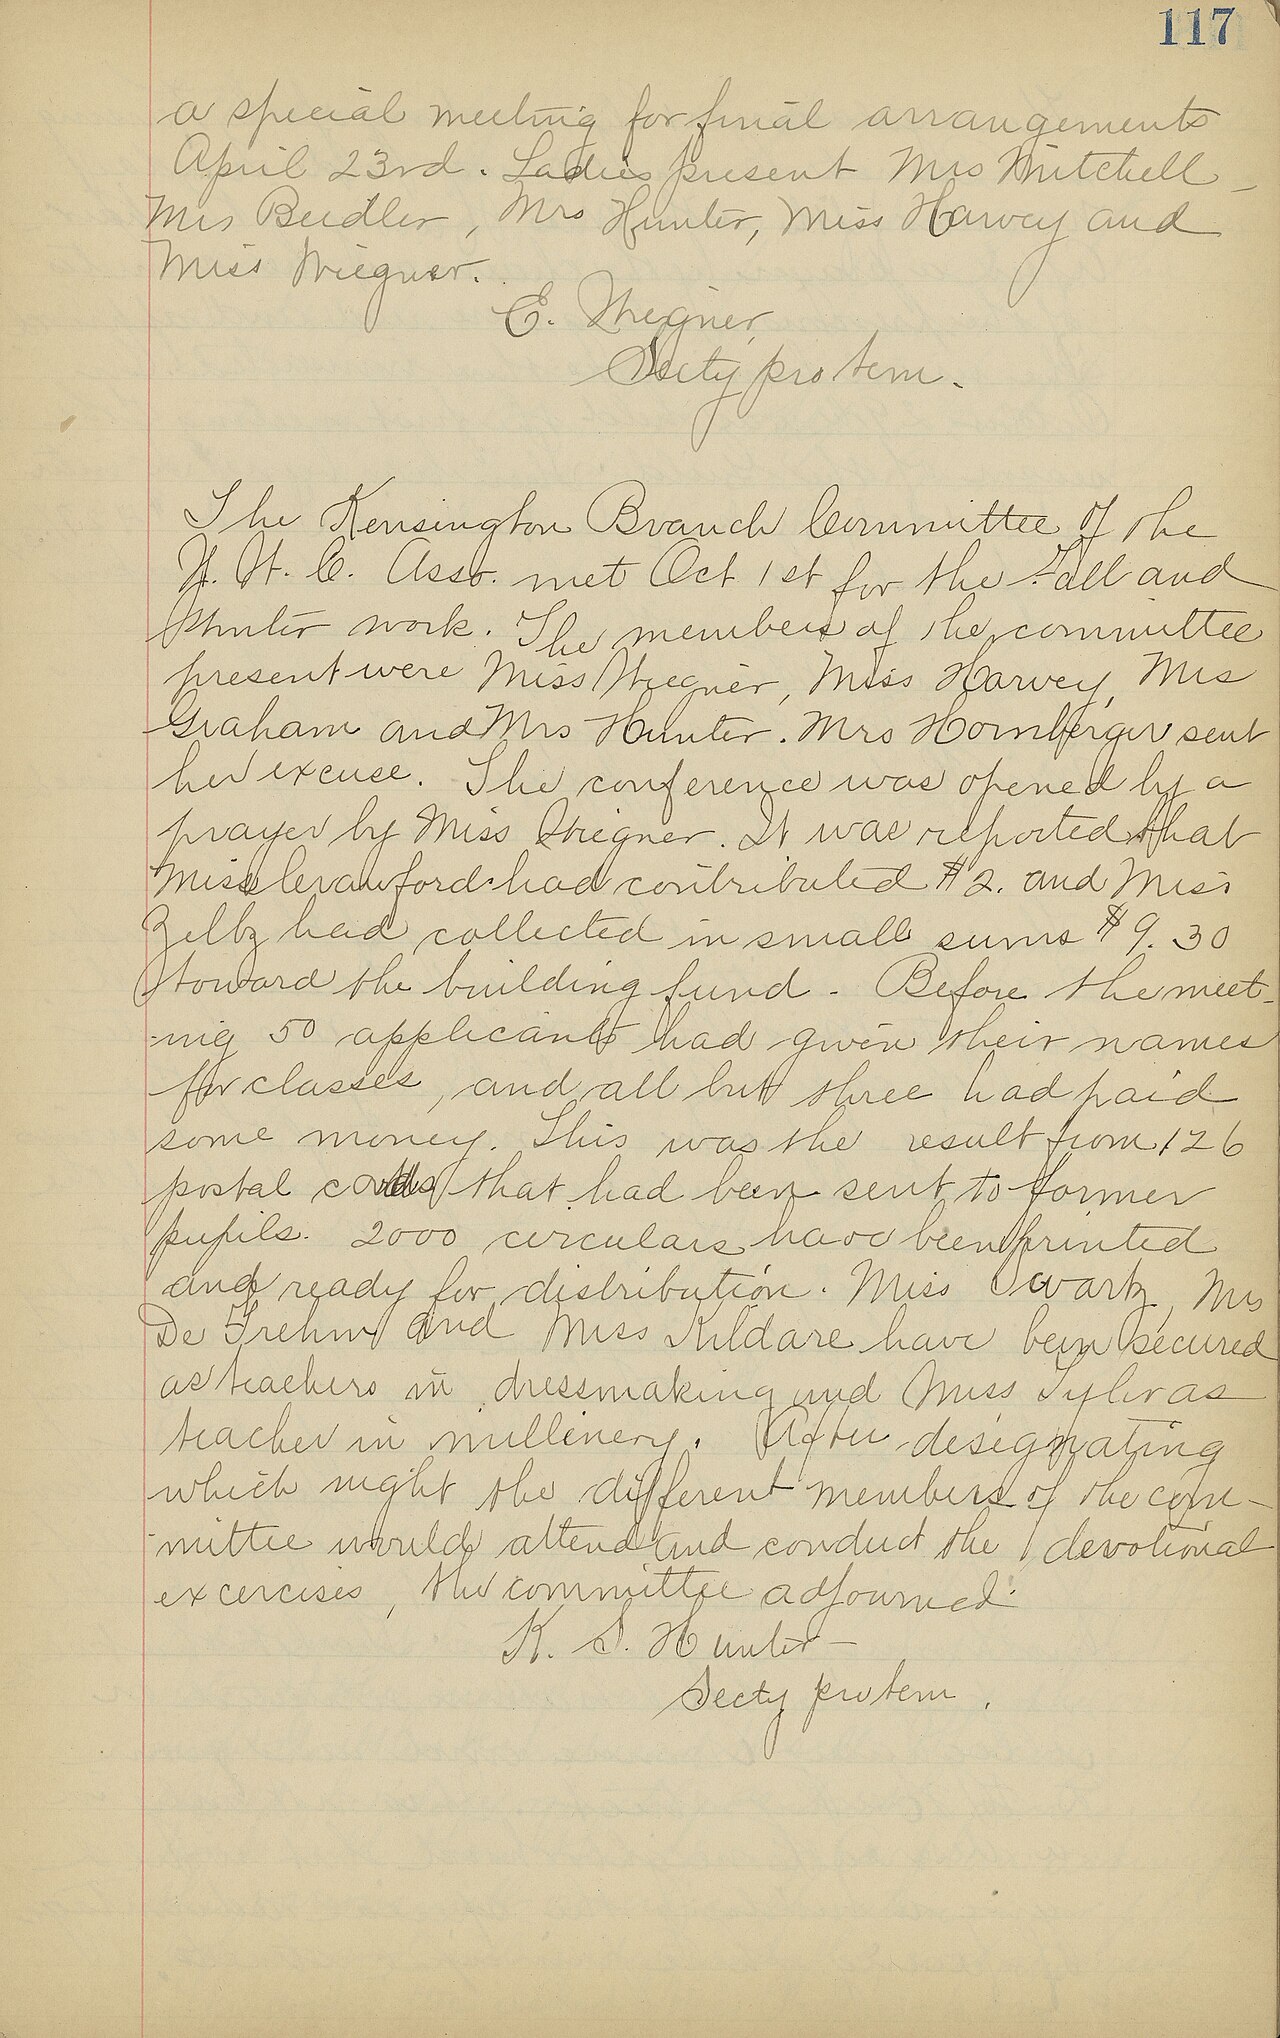 117
a special meeting for final arrangements
April 23rd. Ladies present Mrs Mitchell
Mrs Beidler, Mrs Hunter, Miss Harvey and
Miss Wiegner.
E. Wiegner
Secty pro tem.
The Kensington Branch Committee of the
Y. W. C. Asso. met Oct 1st for the Fall and
Winter work. The members of the committee
present were Miss Wiegner, Miss Harvey, Mrs
Graham and Mrs Hunter. Mrs Hornberger sent
her excuse. The conference was opened by a
prayer by Miss Wiegner. It was reported that
Miss Crawford had contributed $2. and Miss
Zeltz had collected in small sums $9.30
toward the building fund. Before the meet-
-ing 50 applicants had given their names
for classes, and all but three had paid
some money. This was the result from 126
postal cards that had been sent to former
pupils. 2000 circulars have been printed
and ready for distribution. Miss Swartz, Mrs
De Frehn and Miss Kildare have been secured
as teachers in dressmaking and Miss Tyler as
teacher in millinery. After designating
which night the different members of the com-
-mittee would attend and conduct the devotional
excercises, the committee adjourned.
K. S. Hunter -
Secty pro tem.